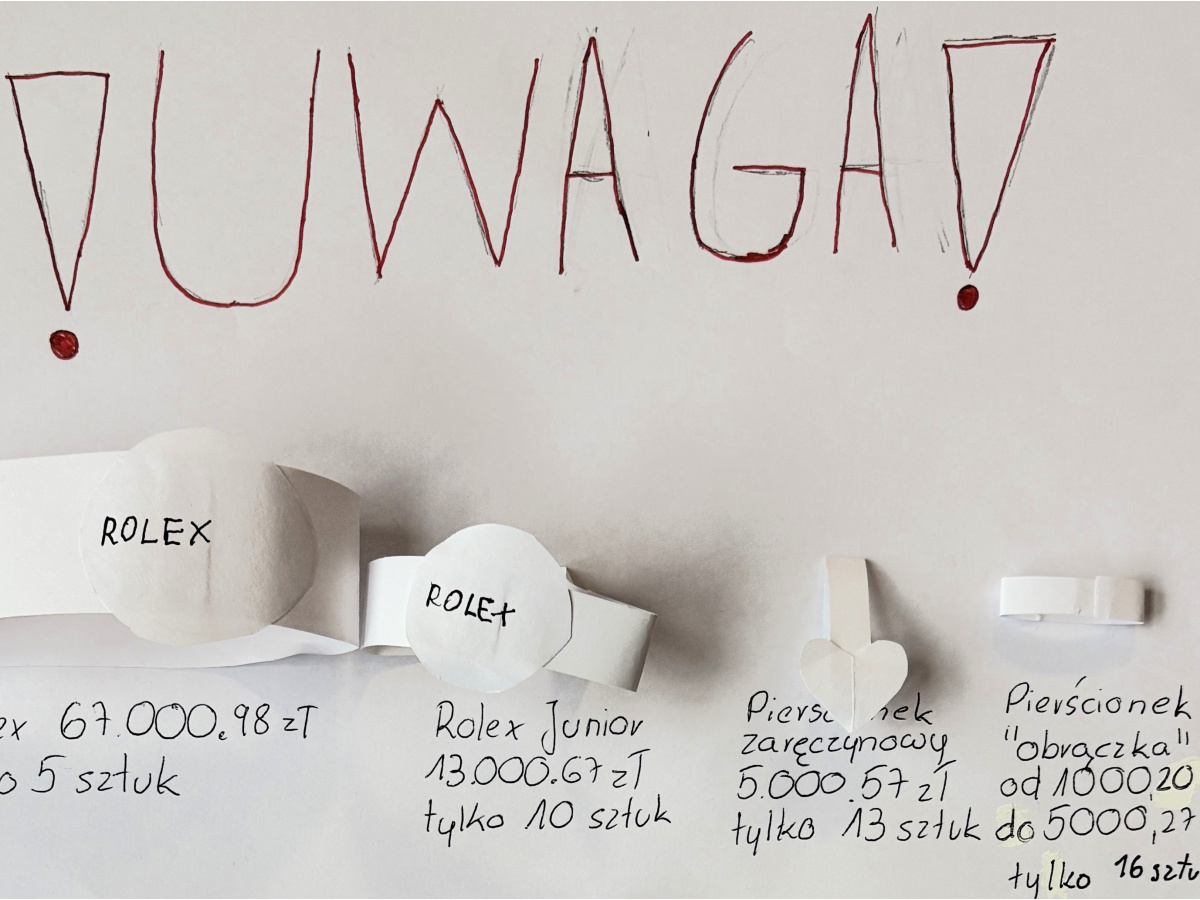 !UWAGA!
ROLEX
ROLEX
ex 67.000.98 zł
o 5 sztuk
Rolex Junior
13.000.67 zł
tylko 10 sztuk
Piersc nek
zaręczynowy
5.000.57 zł
tylko 13 sztuk
Pierścionek
"obrączka"
od 1000,20
do 5000,27
tylko 16 sztu